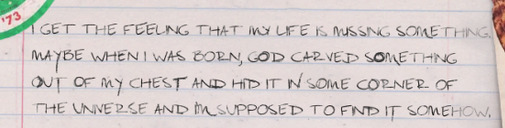 '73
I GET THE FEELING THAT MY LIFE IS MISSING SOMETHING.
MAYBE WHEN I WAS BORN, GOD CARVED SOMETHING
OUT OF MY CHEST AND HID IT IN SOME CORNER OF
THE UNIVERSE AND I'M SUPPOSED TO FIND IT SOMEHOW.